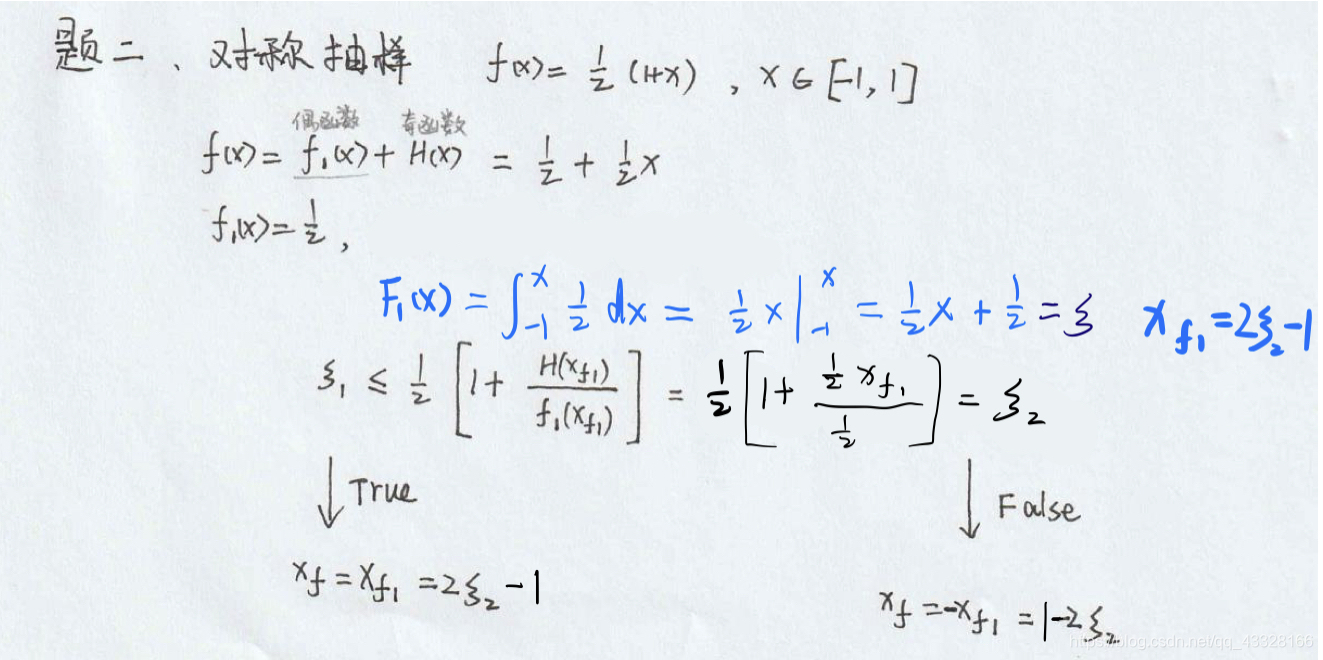 题二、对称抽样 f(x)= 1/2 (1+x) , x ∈ [-1, 1]
偶函数 奇函数
f(x)= f₁(x)+ H(x) = 1/2 + 1/2 x
f₁(x)= 1/2 ,
F₁(x) = ∫₋₁ˣ 1/2 dx = 1/2 x |₋₁ˣ = 1/2 x + 1/2 = ξ x_f₁ = 2ξ₂-1
ξ₁ ≤ 1/2 [1+ H(x_f₁)/f₁(x_f₁)] = 1/2 [1+ (1/2 x_f₁)/(1/2)] = ξ₂
↓ True ↓ False
x_f = x_f₁ = 2ξ₂ -1
x_f = -x_f₁ = 1-2ξ₂
https://blog.csdn.net/qq_43328166